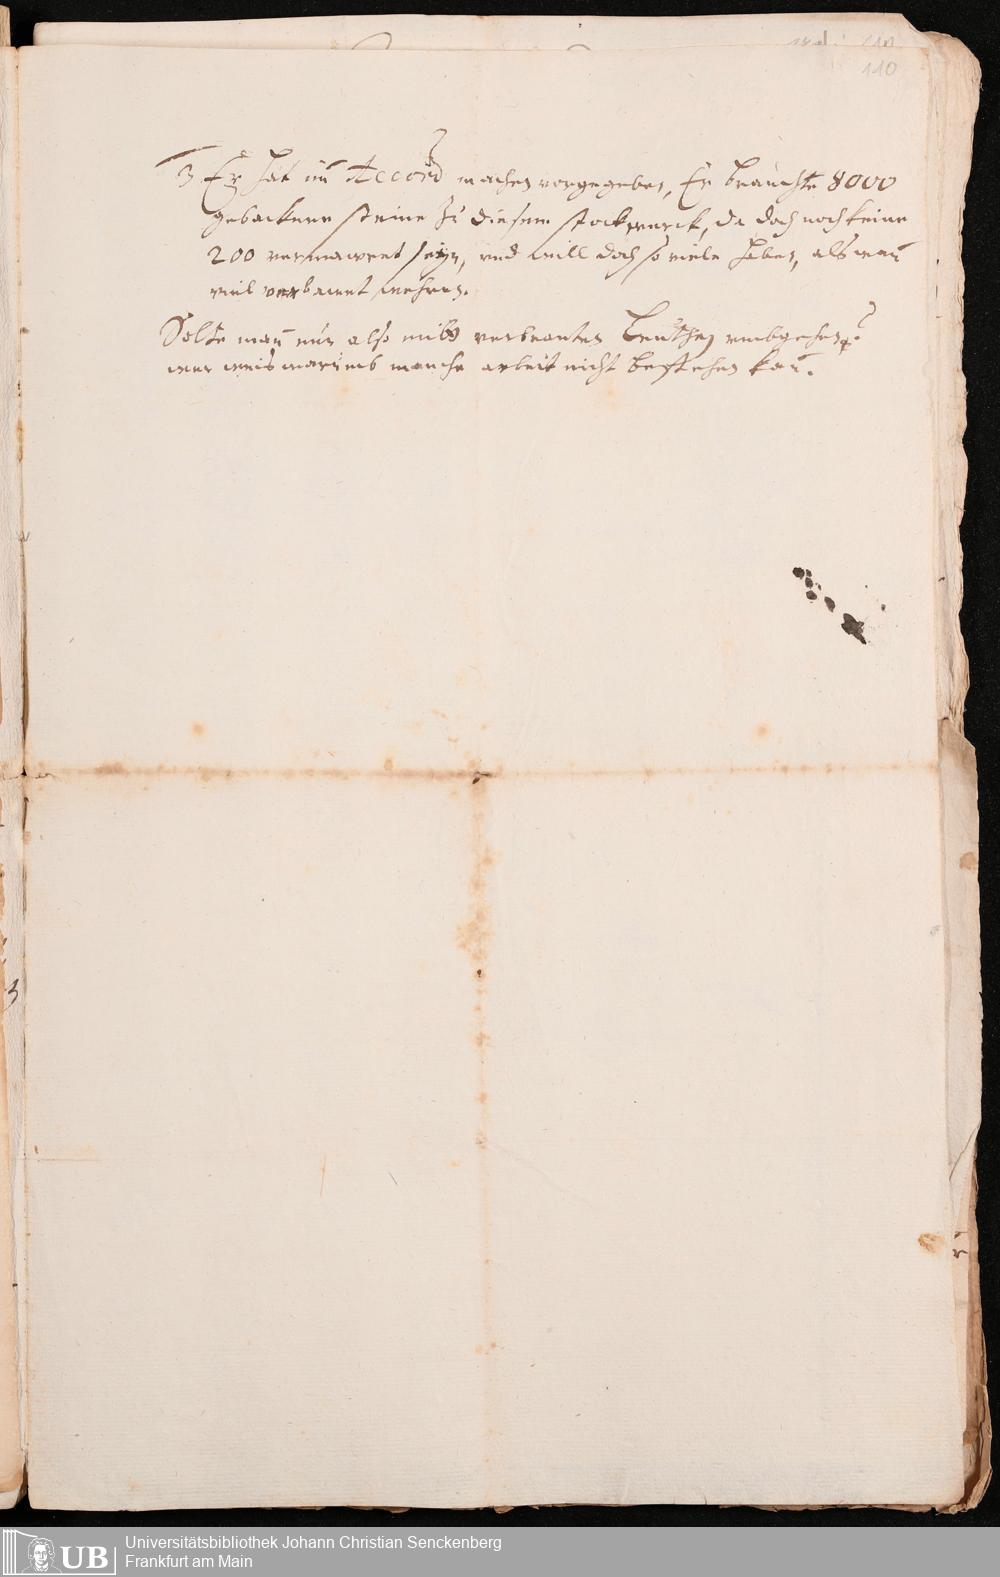 110
3 Er hat im Accord machen vorgegeben, Er brauchte 8000
gebackene steine zu diesem stockwerck, da doch noch keine
200 vermawret seyn, und will doch so viele haben, alß wan
viel verbawet wehren.
Solte man nun also mitt verbranten Leuthen umbgehen?
wer weis warumb manche arbeit nicht bestehen kan.
UB
Universitätsbibliothek Johann Christian Senckenberg
Frankfurt am Main